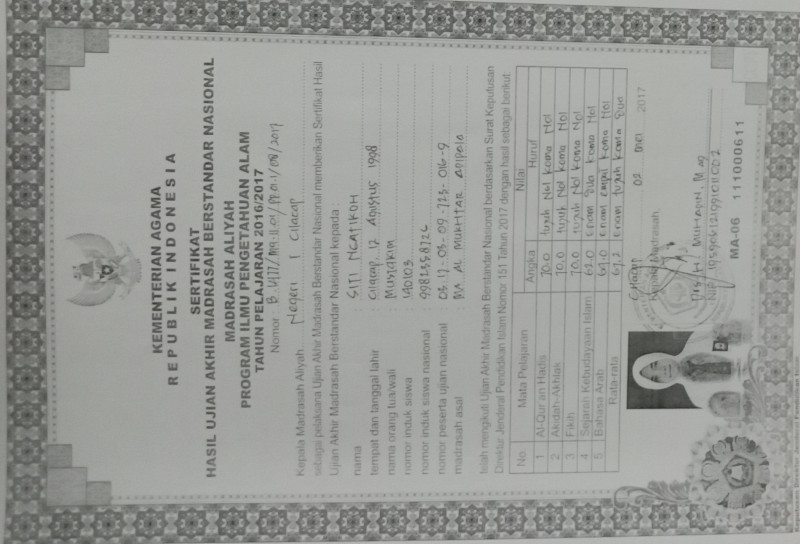 KEMENTERIAN AGAMA
REPUBLIK INDONESIA
SERTIFIKAT
HASIL UJIAN AKHIR MADRASAH BERSTANDAR NASIONAL
MADRASAH ALIYAH
PROGRAM ILMU PENGETAHUAN ALAM
TAHUN PELAJARAN 2016/2017
Nomor :
Kepala Madrasah Aliyah Negeri 1 Cilacap
sebagai pelaksana Ujian Akhir Madrasah Berstandar Nasional memberikan Sertifikat Hasil
Ujian Akhir Madrasah Berstandar Nasional kepada :
nama : SITI NGATIKOH
tempat dan tanggal lahir : Cilacap, 12 Agustus 1998
nama orang tua/wali :
nomor induk siswa :
nomor induk siswa nasional :
nomor peserta ujian nasional :
madrasah asal : MA AL MUKHTAR
telah mengikuti Ujian Akhir Madrasah Berstandar Nasional berdasarkan Surat Keputusan
Direktur Jenderal Pendidikan Islam Nomor 151 Tahun 2017 dengan hasil sebagai berikut:
No Mata Pelajaran Nilai
Angka Huruf
1 Al-Qur'an Hadis 70.0 tujuh Nol koma Nol
2 Akidah-Akhlak 70.0 tujuh Nol koma Nol
3 Fikih 70.0 tujuh Nol koma Nol
4 Sejarah Kebudayaan Islam 62.0 Enam dua koma Nol
5 Bahasa Arab 64.0 Enam empat koma Nol
Rata-rata 67,2 Enam tujuh koma Dua
Cilacap, 02 Mei 2017
Kepala Madrasah,
MA-06 111000611